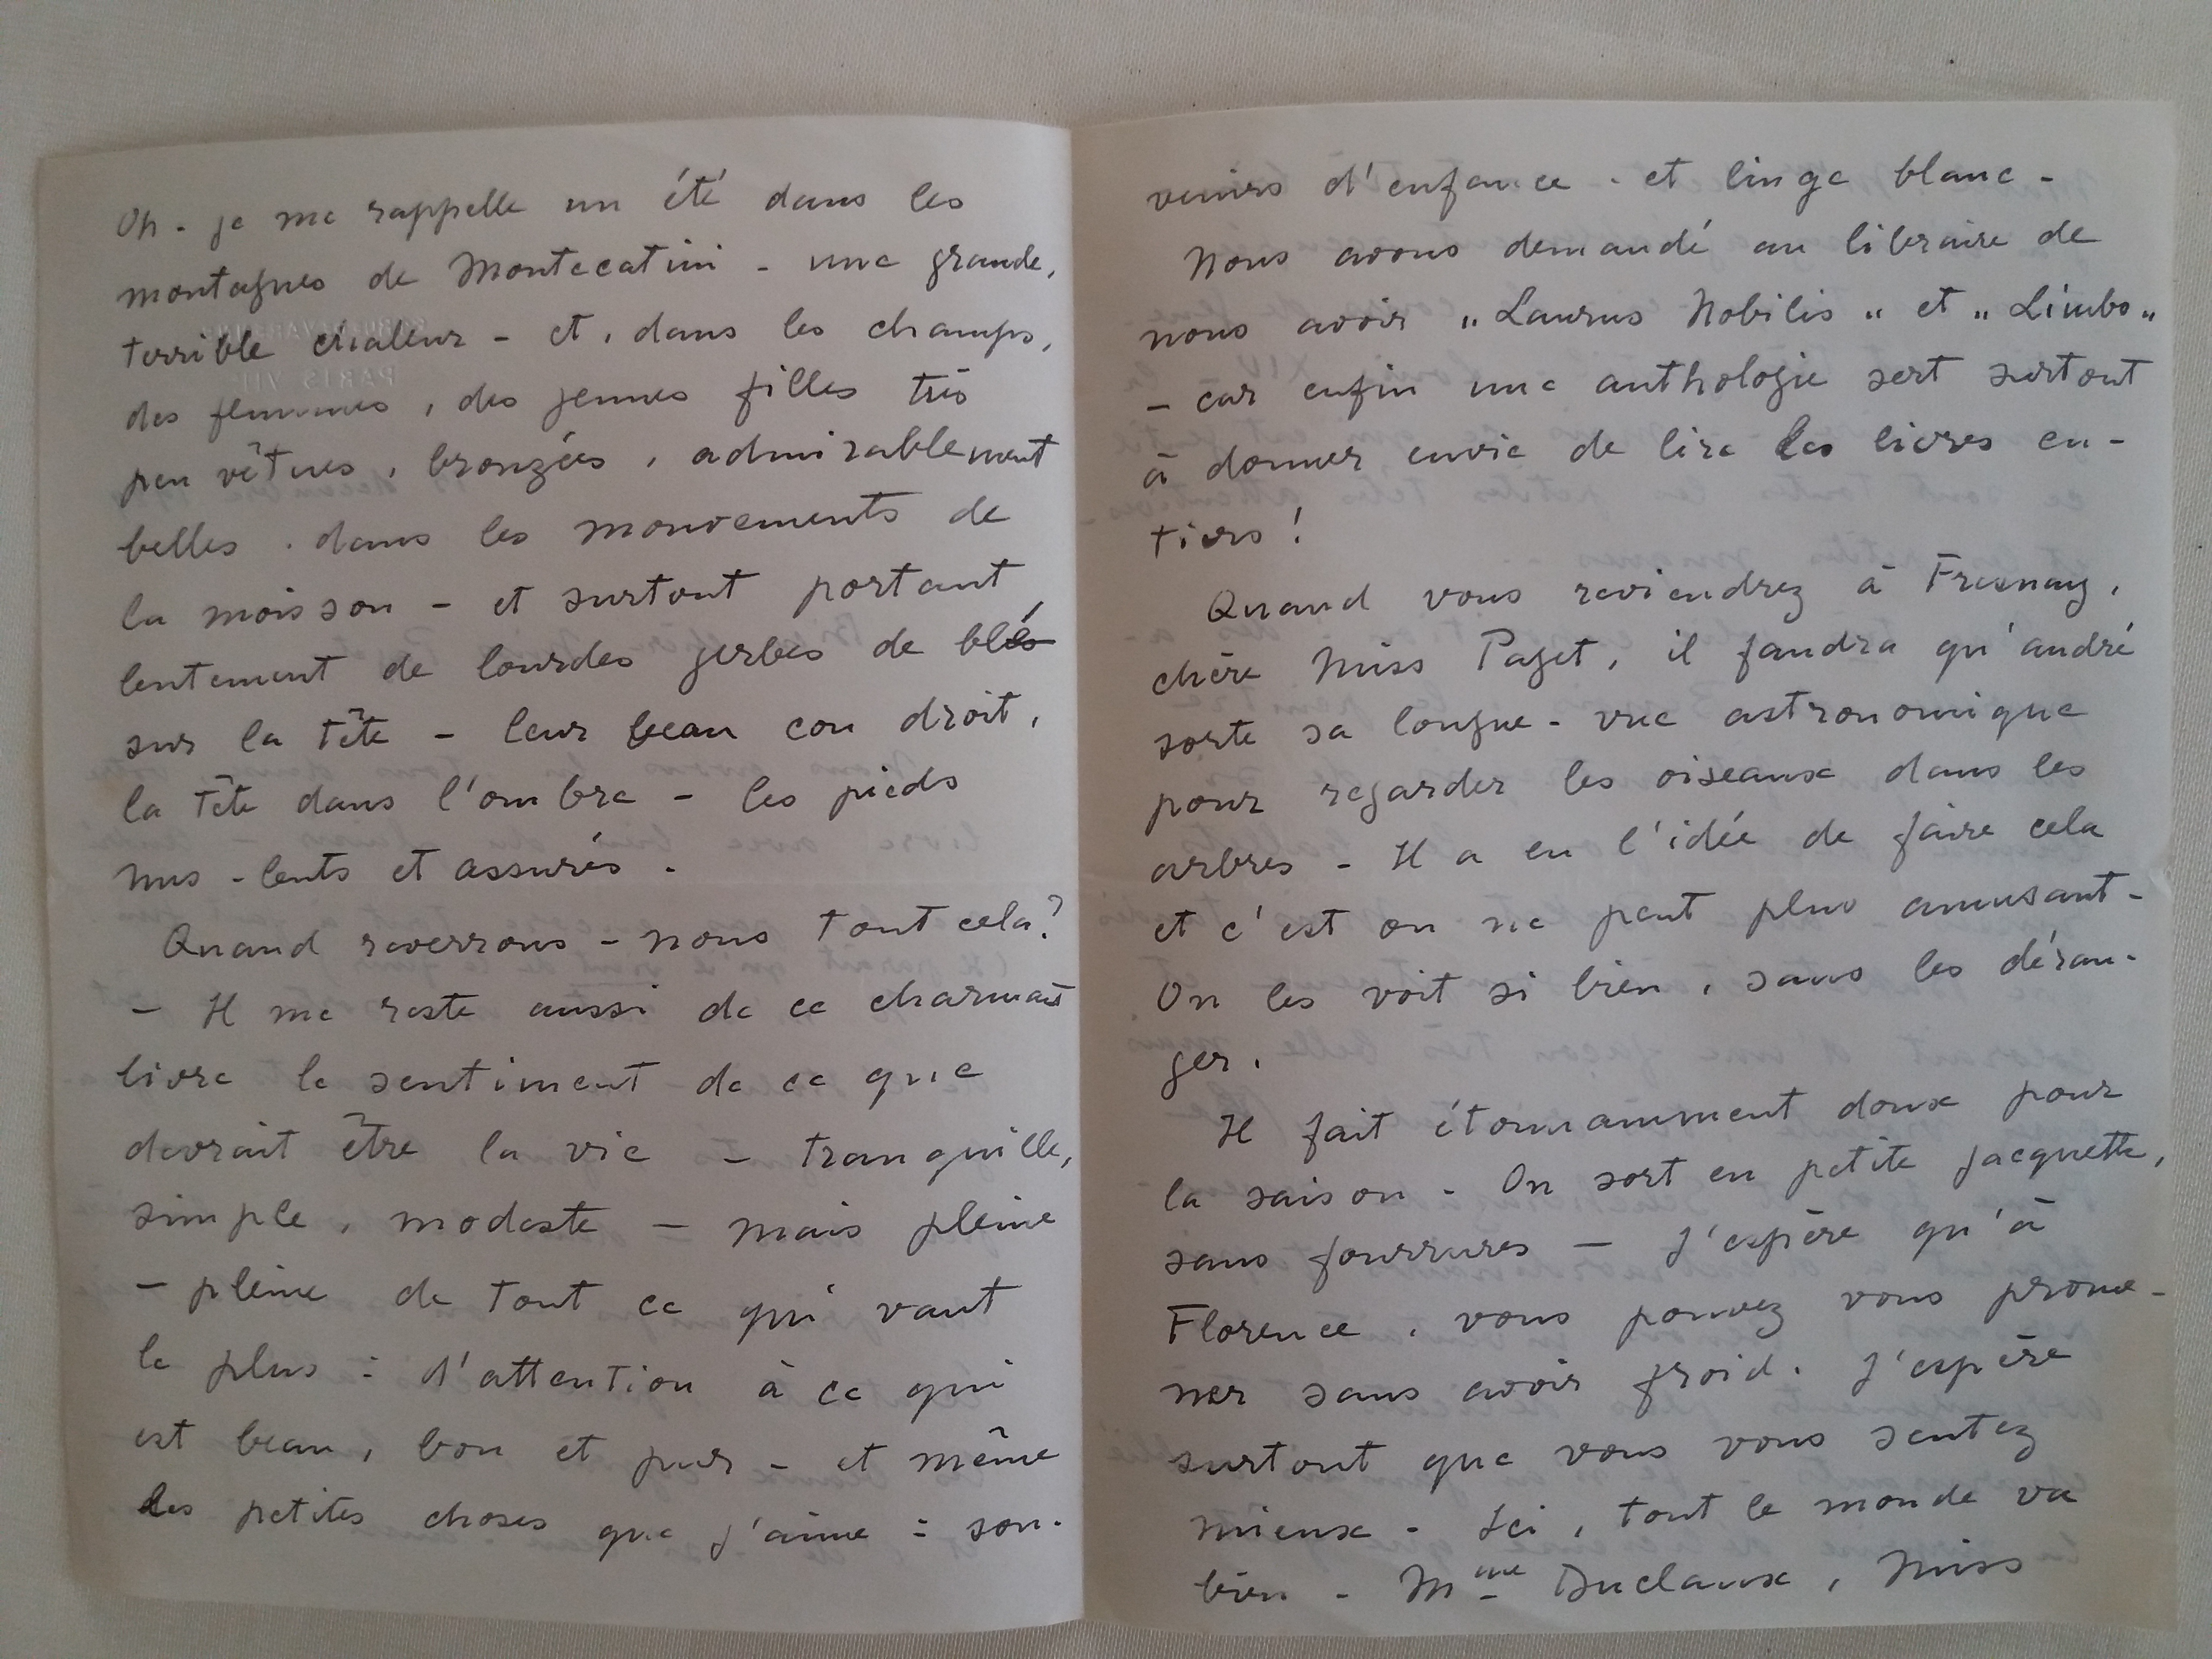 Oh - je me rappelle un été dans les
montagnes de Montecatini - une grande,
terrible chaleur - et, dans les champs,
des femmes, des jeunes filles très
peu vêtues, bronzées, admirablement
belles . dans les mouvements de
la moisson - et surtout portant
lentement de lourdes gerbes de blés
sur la tête - leur beau cou droit,
la tête dans l'ombre - les pieds
nus - lents et assurés .
Quand reverrons-nous tout cela?
- Il me reste aussi de ce charmant
livre le sentiment de ce que
devrait être la vie - tranquille,
simple, modeste - mais pleine
- pleine de tout ce qui vaut
le plus : d'attention à ce qui
est beau, bon et pur - et même
des petites choses que j'aime : sou-
venirs d'enfance - et linge blanc -
Nous avons demandé au libraire de
nous avoir "Laurus Nobilis" et "Limbo"
- car enfin une anthologie sert surtout
à donner envie de lire les livres en-
tiers !
Quand vous reviendrez à Fresnay,
chère Miss Paget, il faudra qu'andré
sorte sa longue-vue astronomique
pour regarder les oiseaux dans les
arbres - Il a eu l'idée de faire cela
et c'est on ne peut plus amusant -
On les voit si bien, sans les déran-
ger.
Il fait étonnamment doux pour
la saison - On sort en petite jacquette,
sans fourrures - J'espère qu'à
Florence, vous pouvez vous prome-
ner sans avoir froid. J'espère
surtout que vous vous sentez
mieux - Ici, tout le monde va
bien - Mme Duclaux, Miss